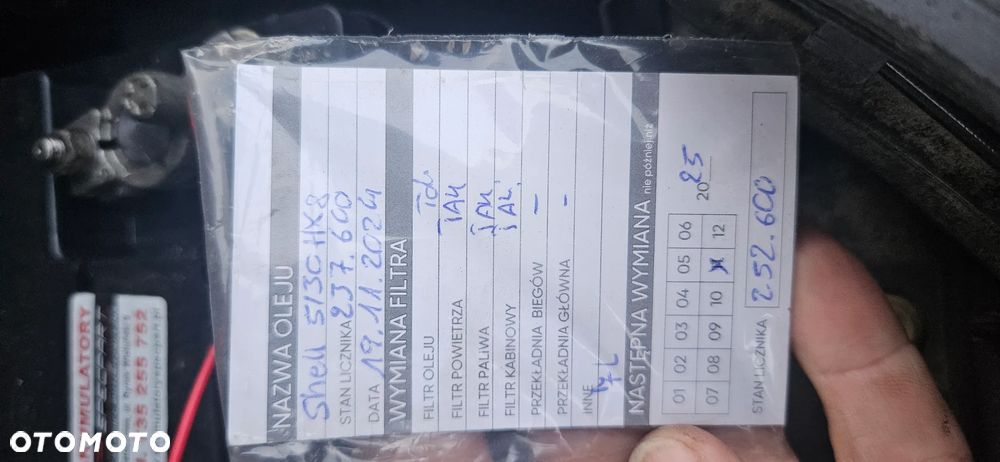 NAZWA OLEJU
Shell 5/30 HX8
STAN LICZNIKA 237.600
DATA 19.11.2024
WYMIANA FILTRA
FILTR OLEJU TAK
FILTR POWIETRZA TAK
FILTR PALIWA TAK
FILTR KABINOWY TAK
PRZEKŁADNIA BIEGÓW -
PRZEKŁADNIA GŁÓWNA -
INNE 7L
NASTĘPNA WYMIANA nie później niż
01 02 03 04 05 06
2025
07 08 09 10 11 12
STAN LICZNIKA 252.600
35 255 752
OTOMOTO